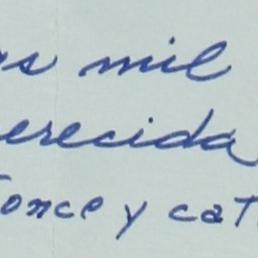 as mil
erecida
Tonce y cat